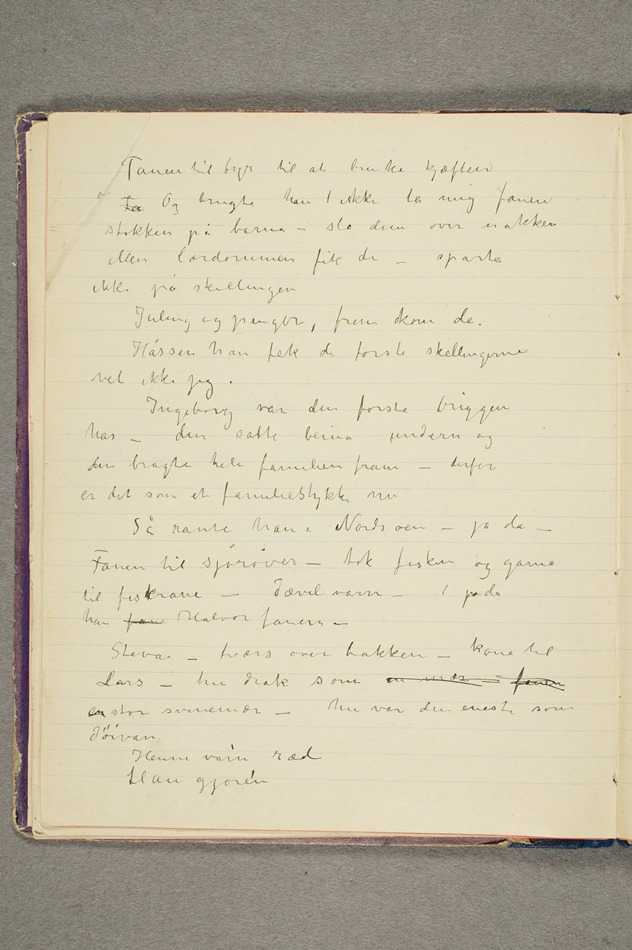 Fanen til byr til at bruke kjæften
Og brugte han ikke la mig fanen
stokken på barna — slo dem over nakken
Men lærdommen fik de — sparte
ikke på skillingen
Juling og penger, frem skom de.
Hássen han fek de første skellingerne
vet ikke jeg.
Ingeborg var den første briggen
has — den satte beina undern og
den bragte hele familien fram — derfor
er det som et familiestykke nu
Så rante han i Nordsoen — ja da —
Fanen til sjørøver — tok fisken og garna
til fiskrane — Dævel varn — ja da
han fan Halvor fanern —
Steva — tvers over bakken — kone til
Lars — hu drak som en mær — fanen
en stor svinemær — hu var den eneste som
Jöivan
Henne varn ræd
Han gjorén